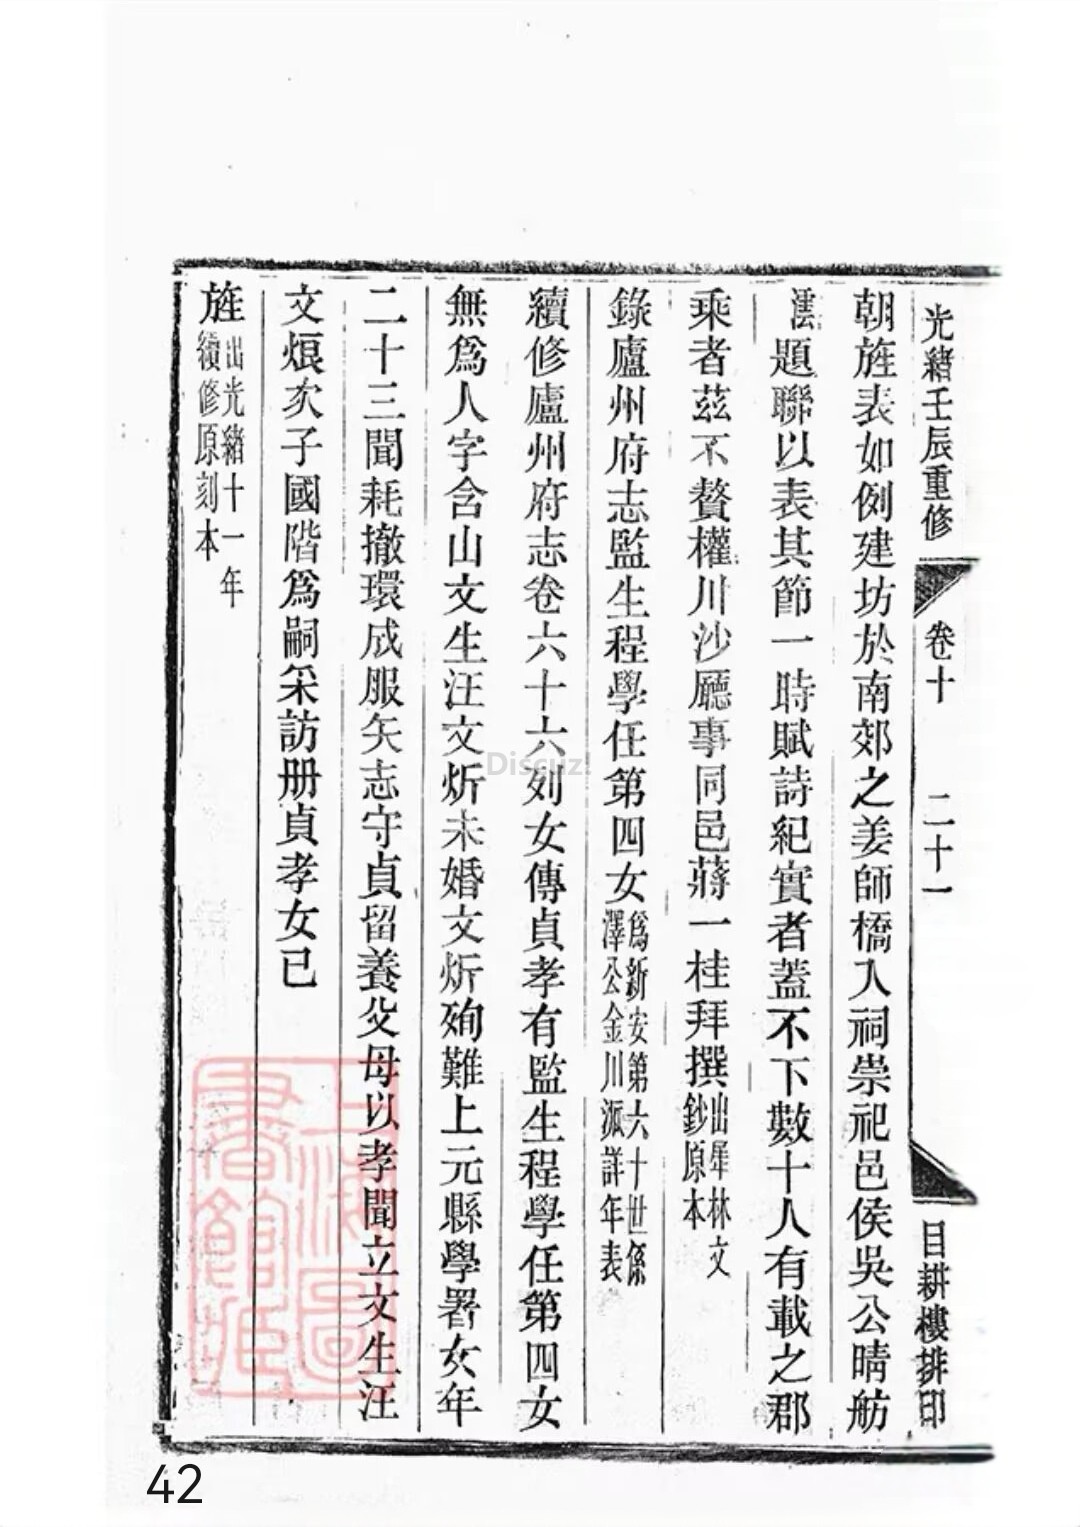 光緒壬辰重修 卷十 二十一 目耕樓排印
朝旌表如例建坊於南郊之姜師橋入祠崇祀邑侯吳公晴舫
澐題聯以表其節一時賦詩紀實者蓋不下數十人有載之郡
乘者茲不贅權川沙廳事同邑蔣一桂拜撰出犀林文
鈔原本
錄廬州府志監生程學任第四女爲新安第六十世係
澤公金川派詳年表
續修廬州府志卷六十六列女傳貞孝有監生程學任第四女
無爲人字含山文生汪文炘未婚文炘殉難上元縣學署女年
二十三聞耗撤環成服矢志守貞留養父母以孝聞立文生汪
文烺次子國階爲嗣采訪册貞孝女已
旌出光緒十一年
續修原刻本
上海圖
書館藏
Discuz!
42